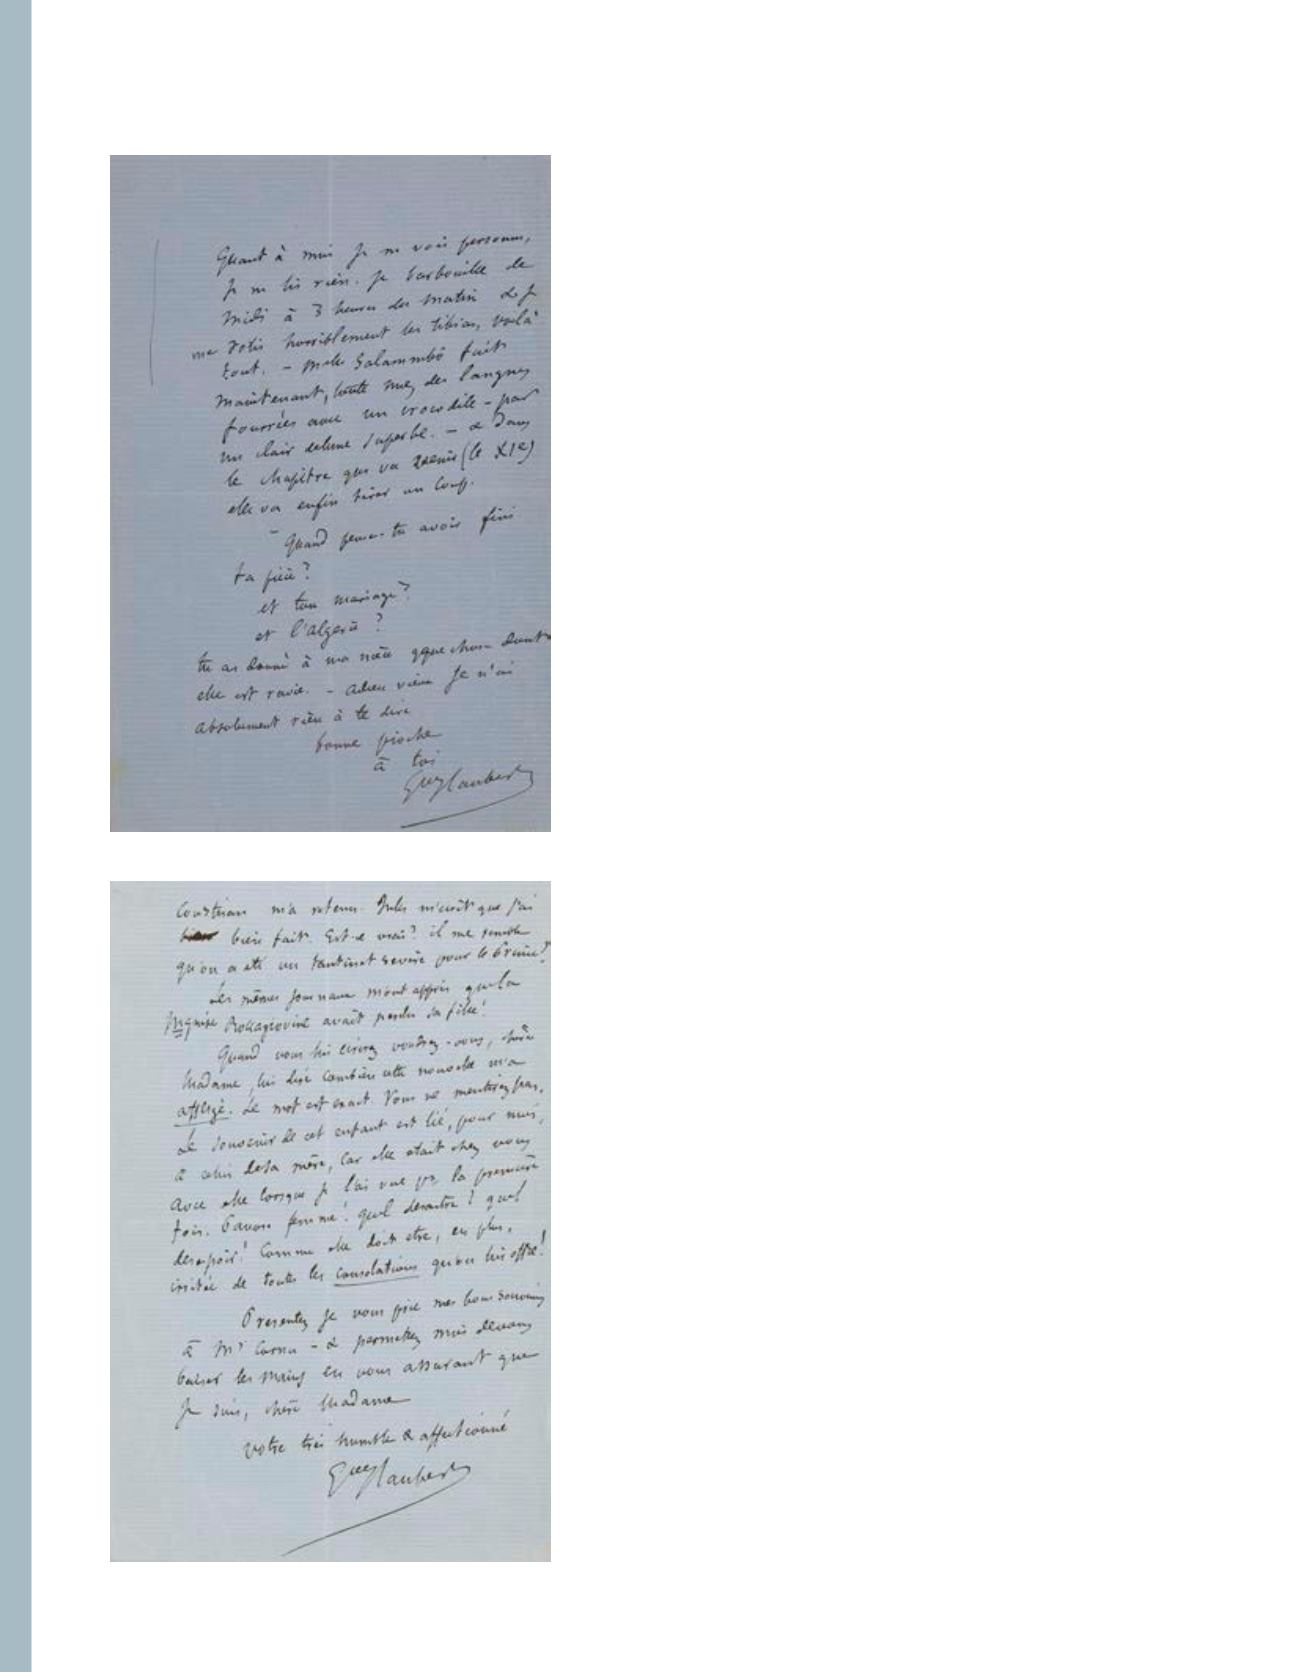 Quant à moi je ne vois personne,
je ne lis rien. je barbouille de
midi à 3 heures du matin & je
me rotis horriblement les tibias, voilà
tout. – Mlle Salammbô fait
maintenant, toute nue, des langues
fourrées avec un crocodile – par
un clair de lune superbe. – & dans
le chapitre qui va venir (le XIe)
elle va enfin tirer un coup.
– Quand penses-tu avoir fini
ta pièce ?
et ton mariage ?
et l'algerie ?
tu as donné à ma nièce qque chose dont
elle est ravie. – adieu vieux je n'ai
absolument rien à te dire
bonne pioche
à toi
Gve Flaubert
m'a retenu. Jules m'écrit que j'ai
bien fait. Est-ce vrai ? il me semble
qu'on a été un tantinet sevère pour le Prince ?
Les mêmes journaux m'ont appris que la
Mquise Roccagiovine avait perdu sa fille !
Quand vous lui écrirez voudrez-vous, chère
Madame, lui dire combien cette nouvelle m'a
affligé. Le mot est exact. Vous ne mentirez pas.
Le souvenir de cet enfant est lié, pour moi,
à celui de sa mère, car elle était chez vous
avec elle lorsque je l'ai vue pr la première
fois. Pauvre femme ! quel desastre ! quel
desespoir ! Comme elle doit etre, en plus,
irritée de toutes les consolations qu'on lui offre !
Presentez je vous prie mes bons souvenirs
à Mr Cornu – & permettez moi de vous
baiser les mains en vous assurant que
je suis, chère Madame
votre très humble & affectionné
Gve Flaubert